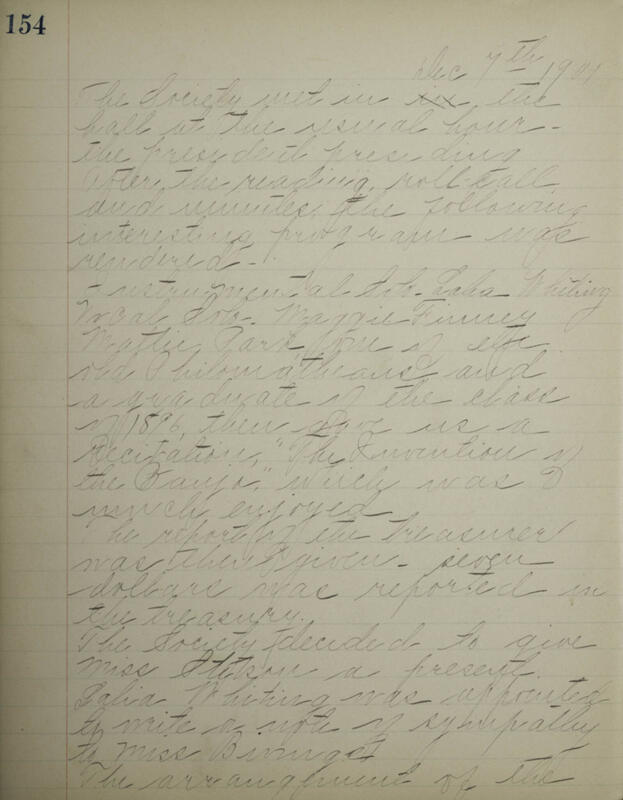 154
Dec 7th 1901
The Society met in in the
hall at the usual hour -
the president presiding
After the reading, roll call
and minutes, the following
interesting program was
rendered -
Instrumental Solo - Whiting
Vocal Solo - Maggie Finney
Mattie Park one of
old Philomatheans and
a graduate of the class
of 1896, then gave us a
Recitation, "The Invention of
the Banjo," which was
much enjoyed
The report of the treasurer
was then given - seven
dollars was reported in
the treasury.
The Society decided to give
Miss Stetson a present.
Whiting was appointed
to write a note of sympathy
to Miss
The arrangement of the